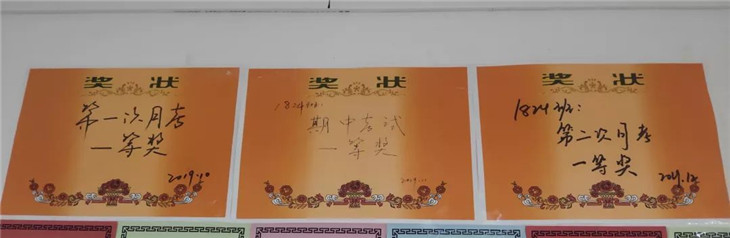 奖状
第一次月考
一等奖
2019.10
奖状
1824班:
期中考试
一等奖
2019.11
奖状
1824班:
第二次月考
一等奖
2019.12